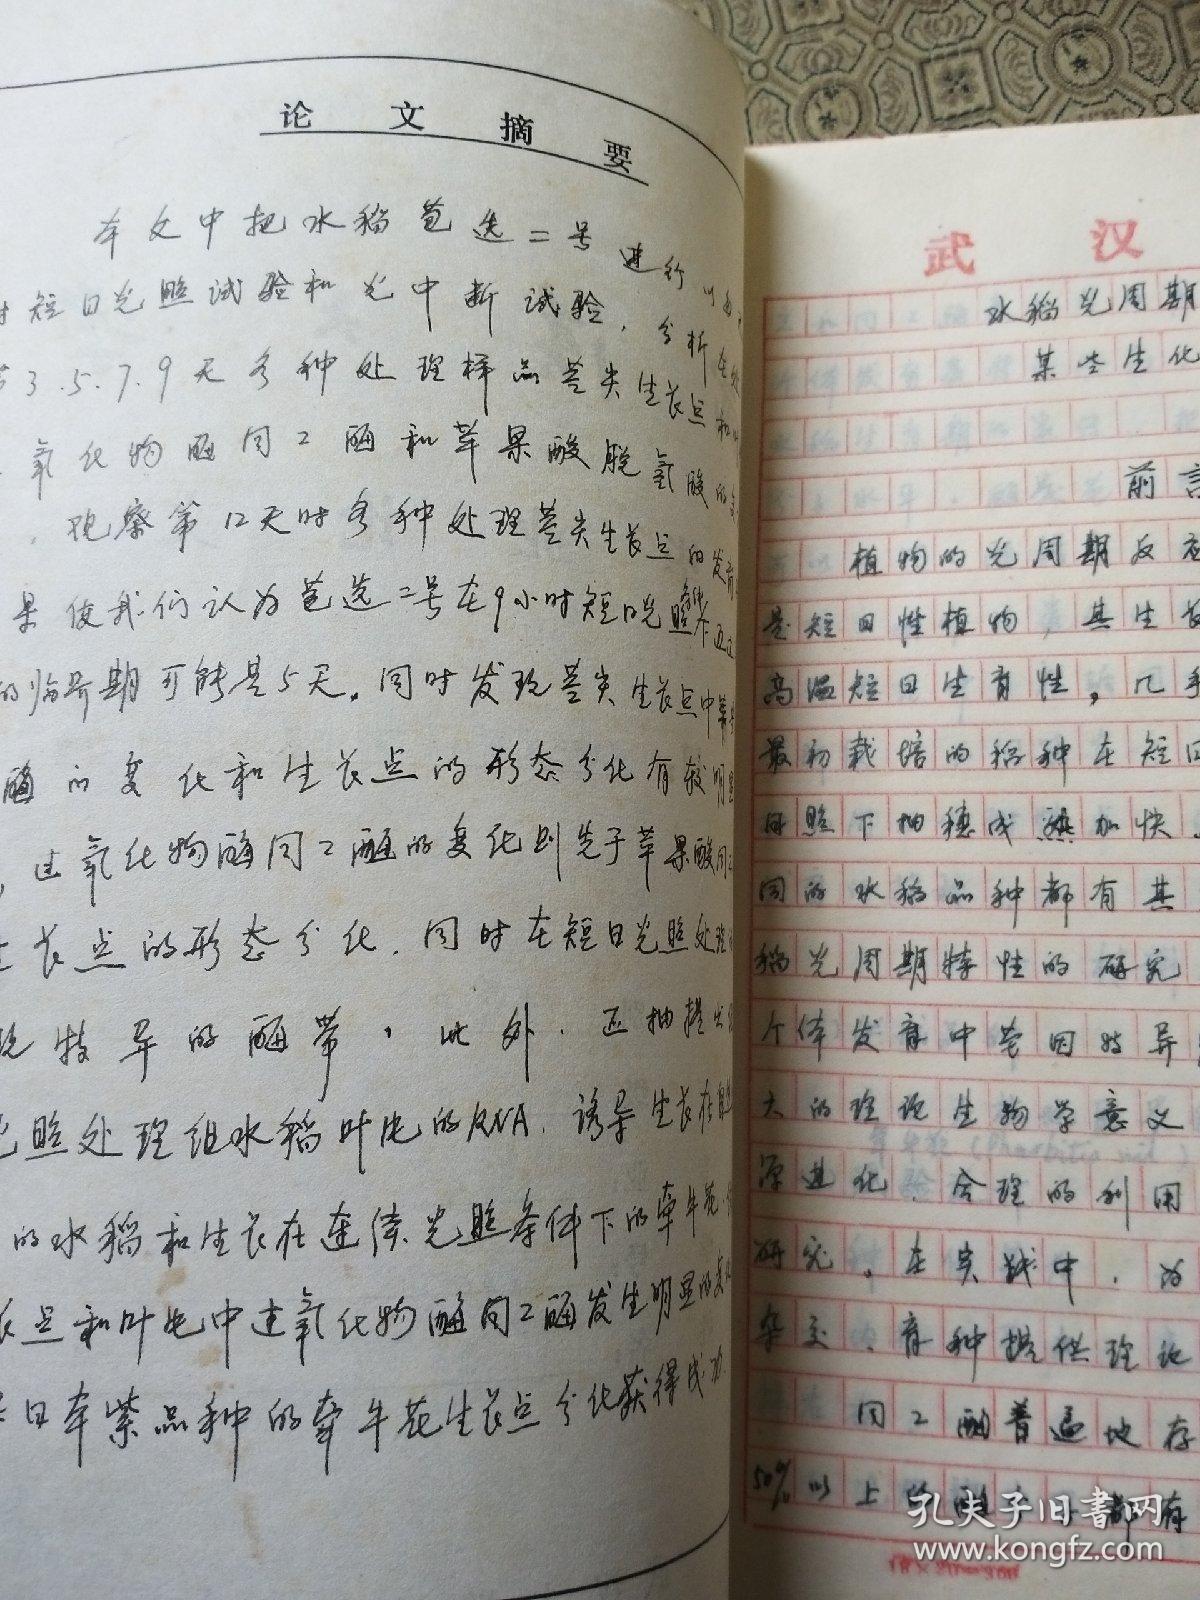 论文摘要
本文中把水稻苞选二号进行
短日光照试验和光中断试验，分析在处
3.5.7.9天各种处理样品茎尖生长点和
氧化物酶同工酶和苹果酸脱氢酸的变
观察第12天时各种处理茎尖生长点的发育
果使我们认为苞选二号在9小时短日光照
的临界期可能是5天。同时发现茎尖生长点中
酶的变化和生长点的形态分化有较明显
过氧化物酶同工酶的变化则先于苹果酸同
长点的形态分化．同时在短日光照处理
特异的酶带，此外．还抽提出
照处理组水稻叶片的RNA．诱导生长在自
的水稻和生长在连续光照条件下的牵牛花
点和叶片中过氧化物酶同工酶发生明显的变化
日本紫品种的牵牛花生长点分化获得成功
武汉
水稻光周期
某些生化
前言
植物的光周期反应
是短日性植物，其生长
高温短日生育性，几乎
最初栽培的稻种在短日
日照下抽穗成熟加快
同的水稻品种都有其
稻光周期特性的研究
个体发育中基因特异
大的理论生物学意义
源进化．合理的利用
研究。在实践中．为
杂交．育种提供理论
同工酶普遍地存
50%以上的酶 都有
18×20=360
孔夫子旧书网
www.kongfz.com